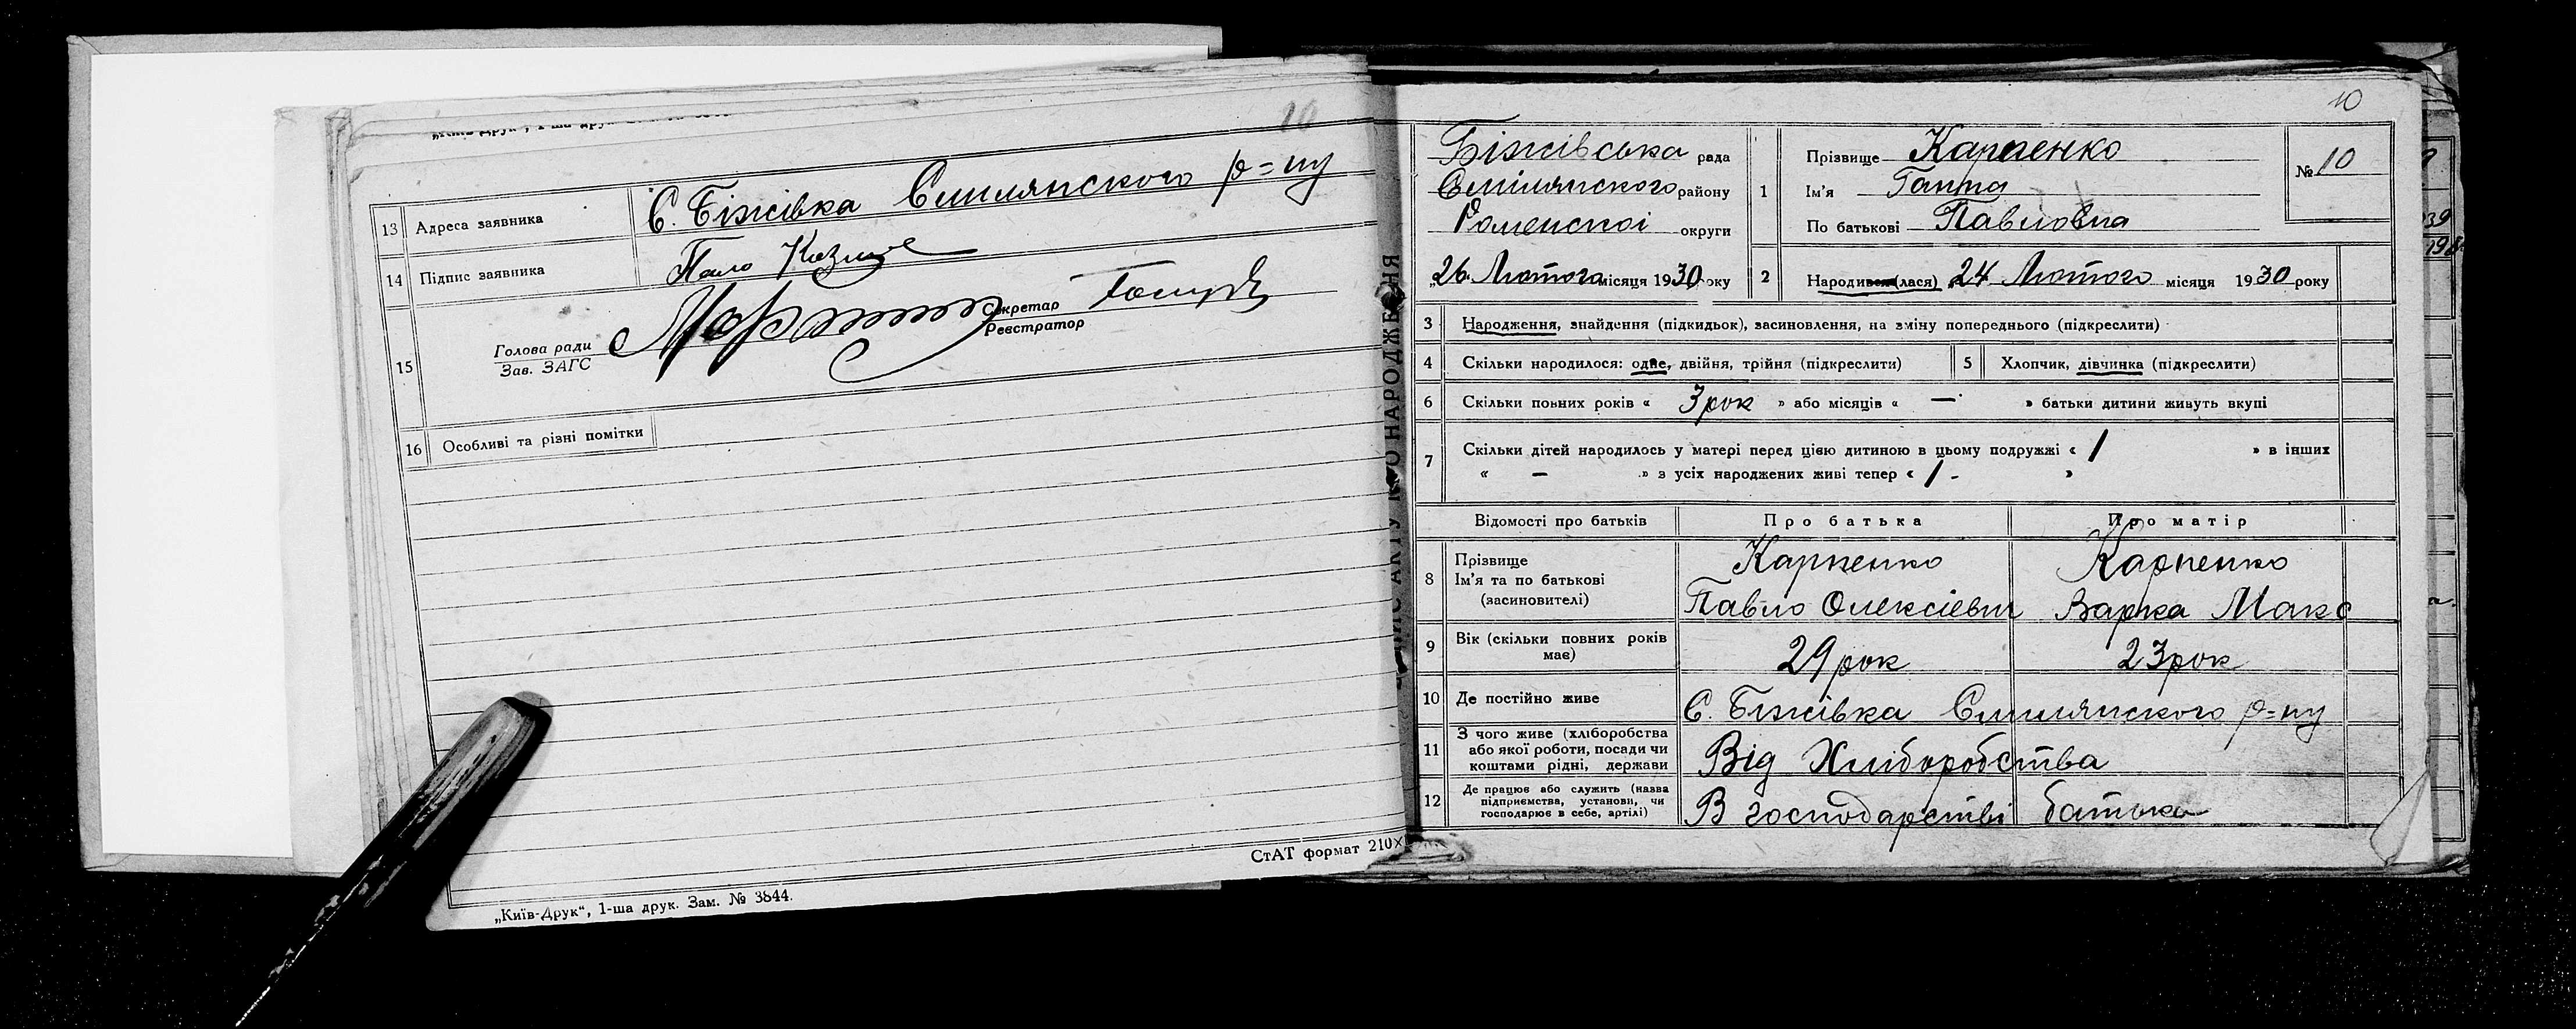 10
13 Адреса заявника С. Біжівка Смілянского р=ну
14 Підпис заявника
15 Голова ради
Зав. ЗАГС
Секретар
Реєстратор
16 Особливі та різні помітки
СтАТ формат 210×
„Київ-Друк“, 1-ша друк. Зам. № 3844.
10
Біжівська рада
Смілянского району
Роменскоі округи
„26 Лютого місяця 1930 року
1 Прізвище Карпенко
Ім’я Ганна
По батькові Павловна
№ 10
2 Народився (лася) „24 Лютого місяця 1930 року
3 Народження, знайдення (підкидьок), засиновлення, на зміну попереднього (підкреслити)
4 Скільки народилося: одне, двійня, трійня (підкреслити) 5 Хлопчик, дівчинка (підкреслити)
6 Скільки повних років « 3 рок » або місяців « — » батьки дитини живуть вкупі
7 Скільки дітей народилось у матері перед цією дитиною в цьому подружжі « 1 » в інших
« — » з усіх народжених живі тепер « 1 - »
Відомості про батьків Про батька Про матір
8 Прізвище
Ім’я та по батькові
(засиновителі)
Карпенко Карпенко
Павло Олексіевич Варка Макс
9 Вік (скільки повних років
має)
29 рок 23 рок
10 Де постійно живе С. Біжівка Смілянского р=ну
11 З чого живе (хліборобства
або якої роботи, посади чи
коштами рідні, держави
Від Хліборобства
12 Де працює або служить (назва
підприємства, установи, чи
господарює в себе, артілі)
В господарстві батька